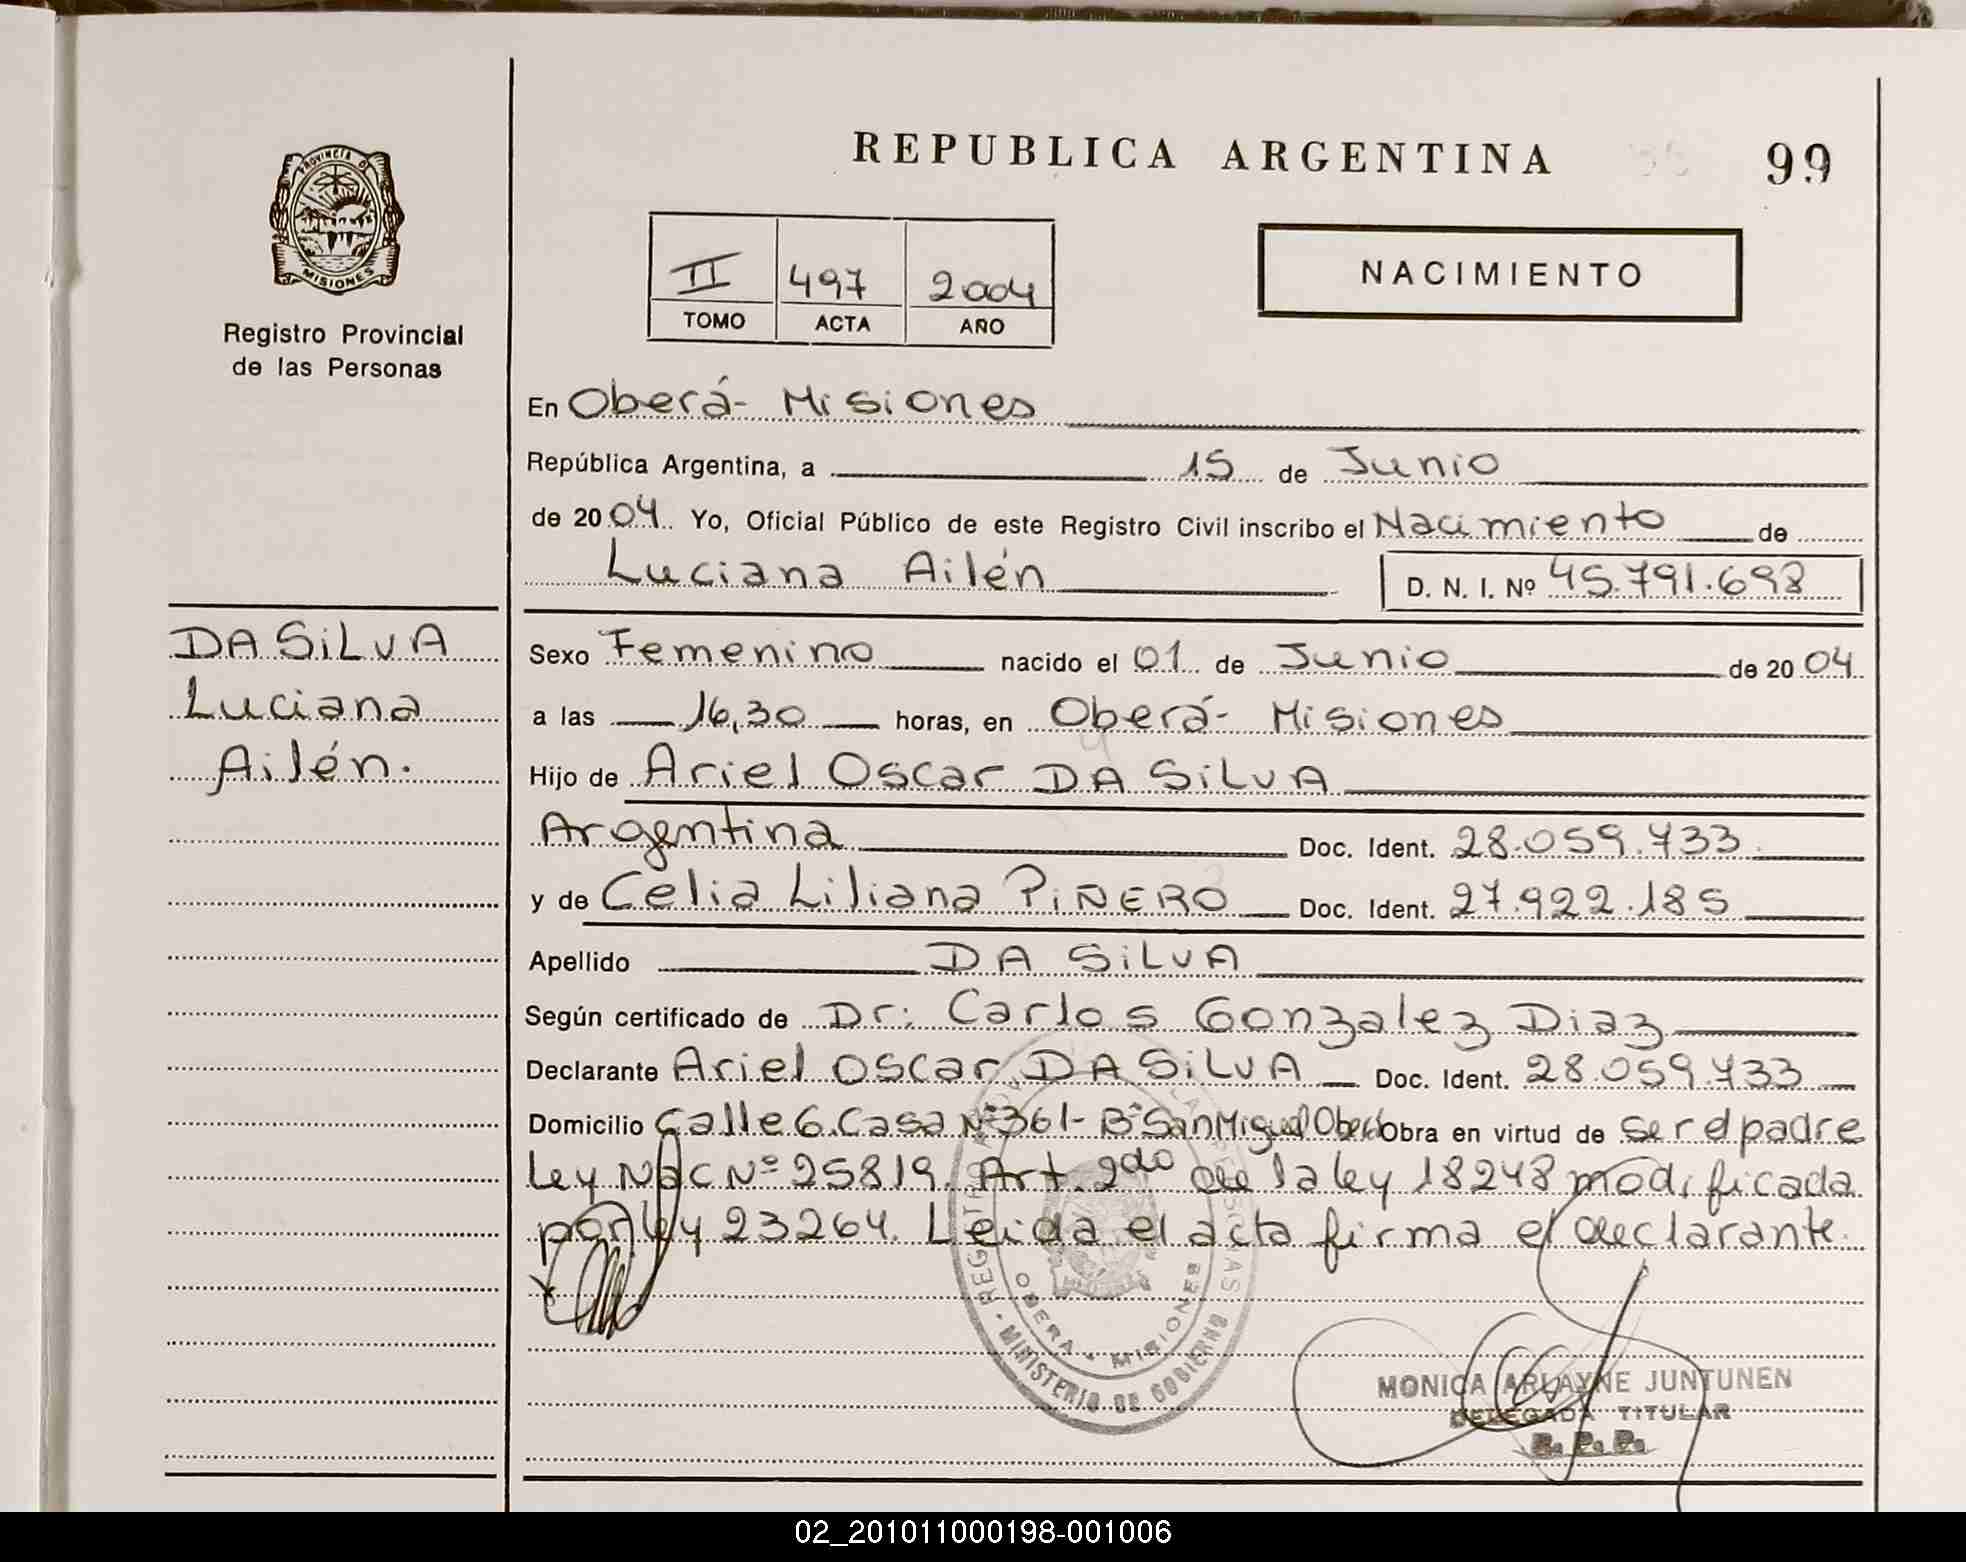 REPUBLICA ARGENTINA 99
PROVINCIA DE
MISIONES
Registro Provincial
de las Personas
II 497 2004
TOMO ACTA AÑO
NACIMIENTO
En Oberá- Misiones
República Argentina, a 15 de Junio
de 2004 Yo, Oficial Público de este Registro Civil inscribo el Nacimiento de
Luciana Ailén D. N. I. Nº 45.791.698
DA SiLVA
Luciana
Ailén.
Sexo Femenino nacido el 01 de Junio de 2004
a las 16,30 horas, en Oberá- Misiones
Hijo de Ariel Oscar DA SiLVA
Argentina Doc. Ident. 28.059.733
y de Celia Liliana PiÑERO Doc. Ident. 27.922.185
Apellido DA SiLVA
Según certificado de Dr: Carlos Gonzalez Diaz
Declarante Ariel Oscar DA SiLVA Doc. Ident. 28.059.733
Domicilio Calle 6. Casa Nº361- Bº San Miguel Oberá Obra en virtud de ser el padre
Ley NAC Nº 25819. Art. 2do de la ley 18248 modificada
por ley 23264. Leida el acta firma el declarante.
OBERA - MISIONES
MINISTERIO DE GOBIERNO
MONICA ARLAYNE JUNTUNEN
DELEGADA TITULAR
R. P. P.
02_201011000198-001006